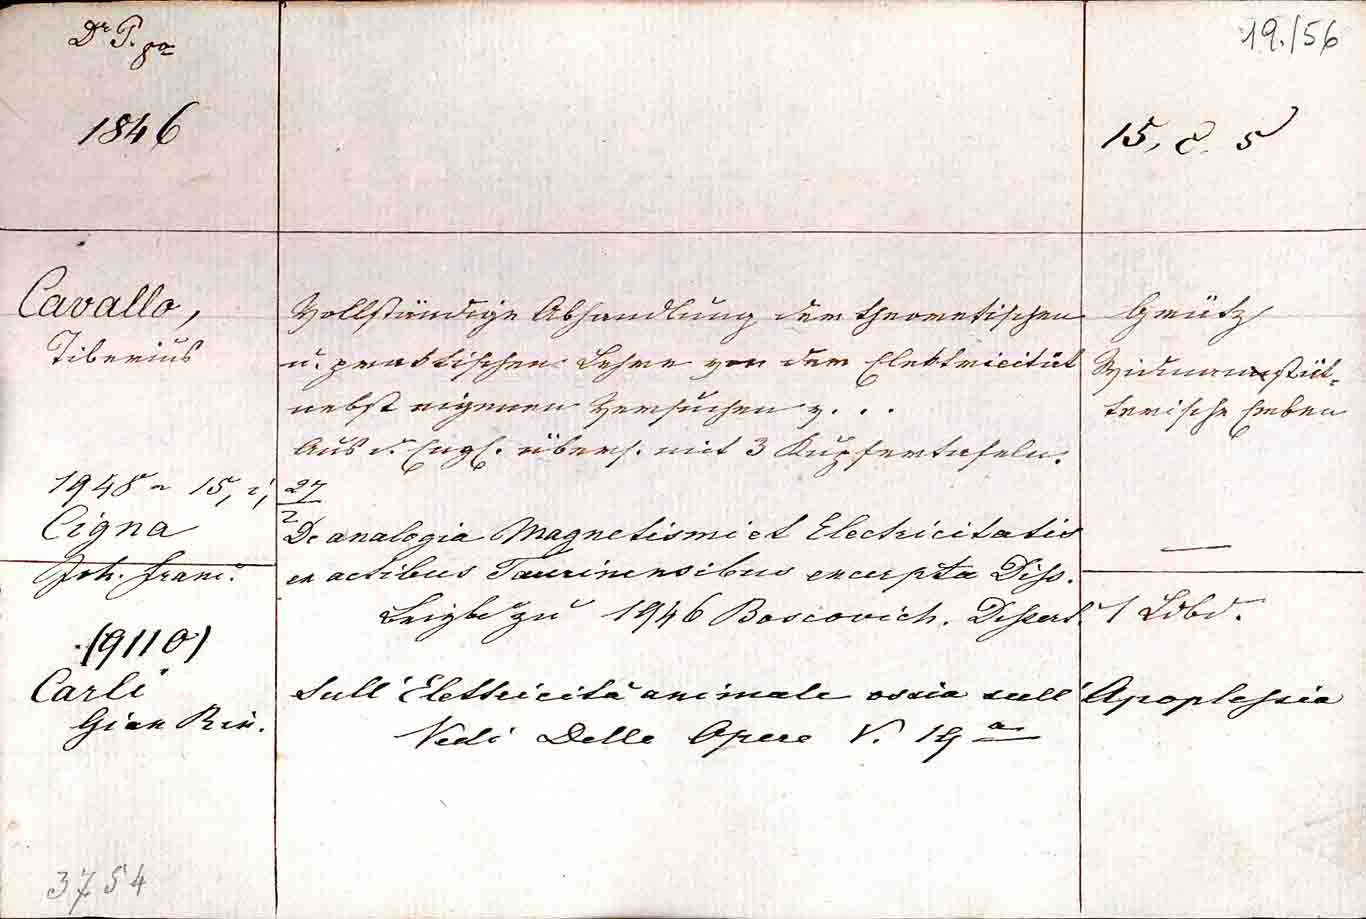 Dr P. 8o
19./56
1846
15, c. 5
Cavallo,
Tiberius
Vollständige Abhandlung der theoretischen
u. praktischen Lehre von der Elektricität
nebst eigenen Versuchen v. . .
Aus d. Engl. übers. mit 3 Kupfertafeln.
Grätz
Widmannstät-
terische Erben
1948 15, i, 27/2
Cigna
Joh. Franc.
De analogia Magnetismi et Electricitatis
ex actibus Taurinensibus excerpta Diss.
zu 1946 Boscovich. Dissert. 1 Ldbd.
(9110)
Carli
Gian Rin.
Sull' Elettricità animale ossia sull' Apoplessia
Vedi Delle Opere V. 19a
3754